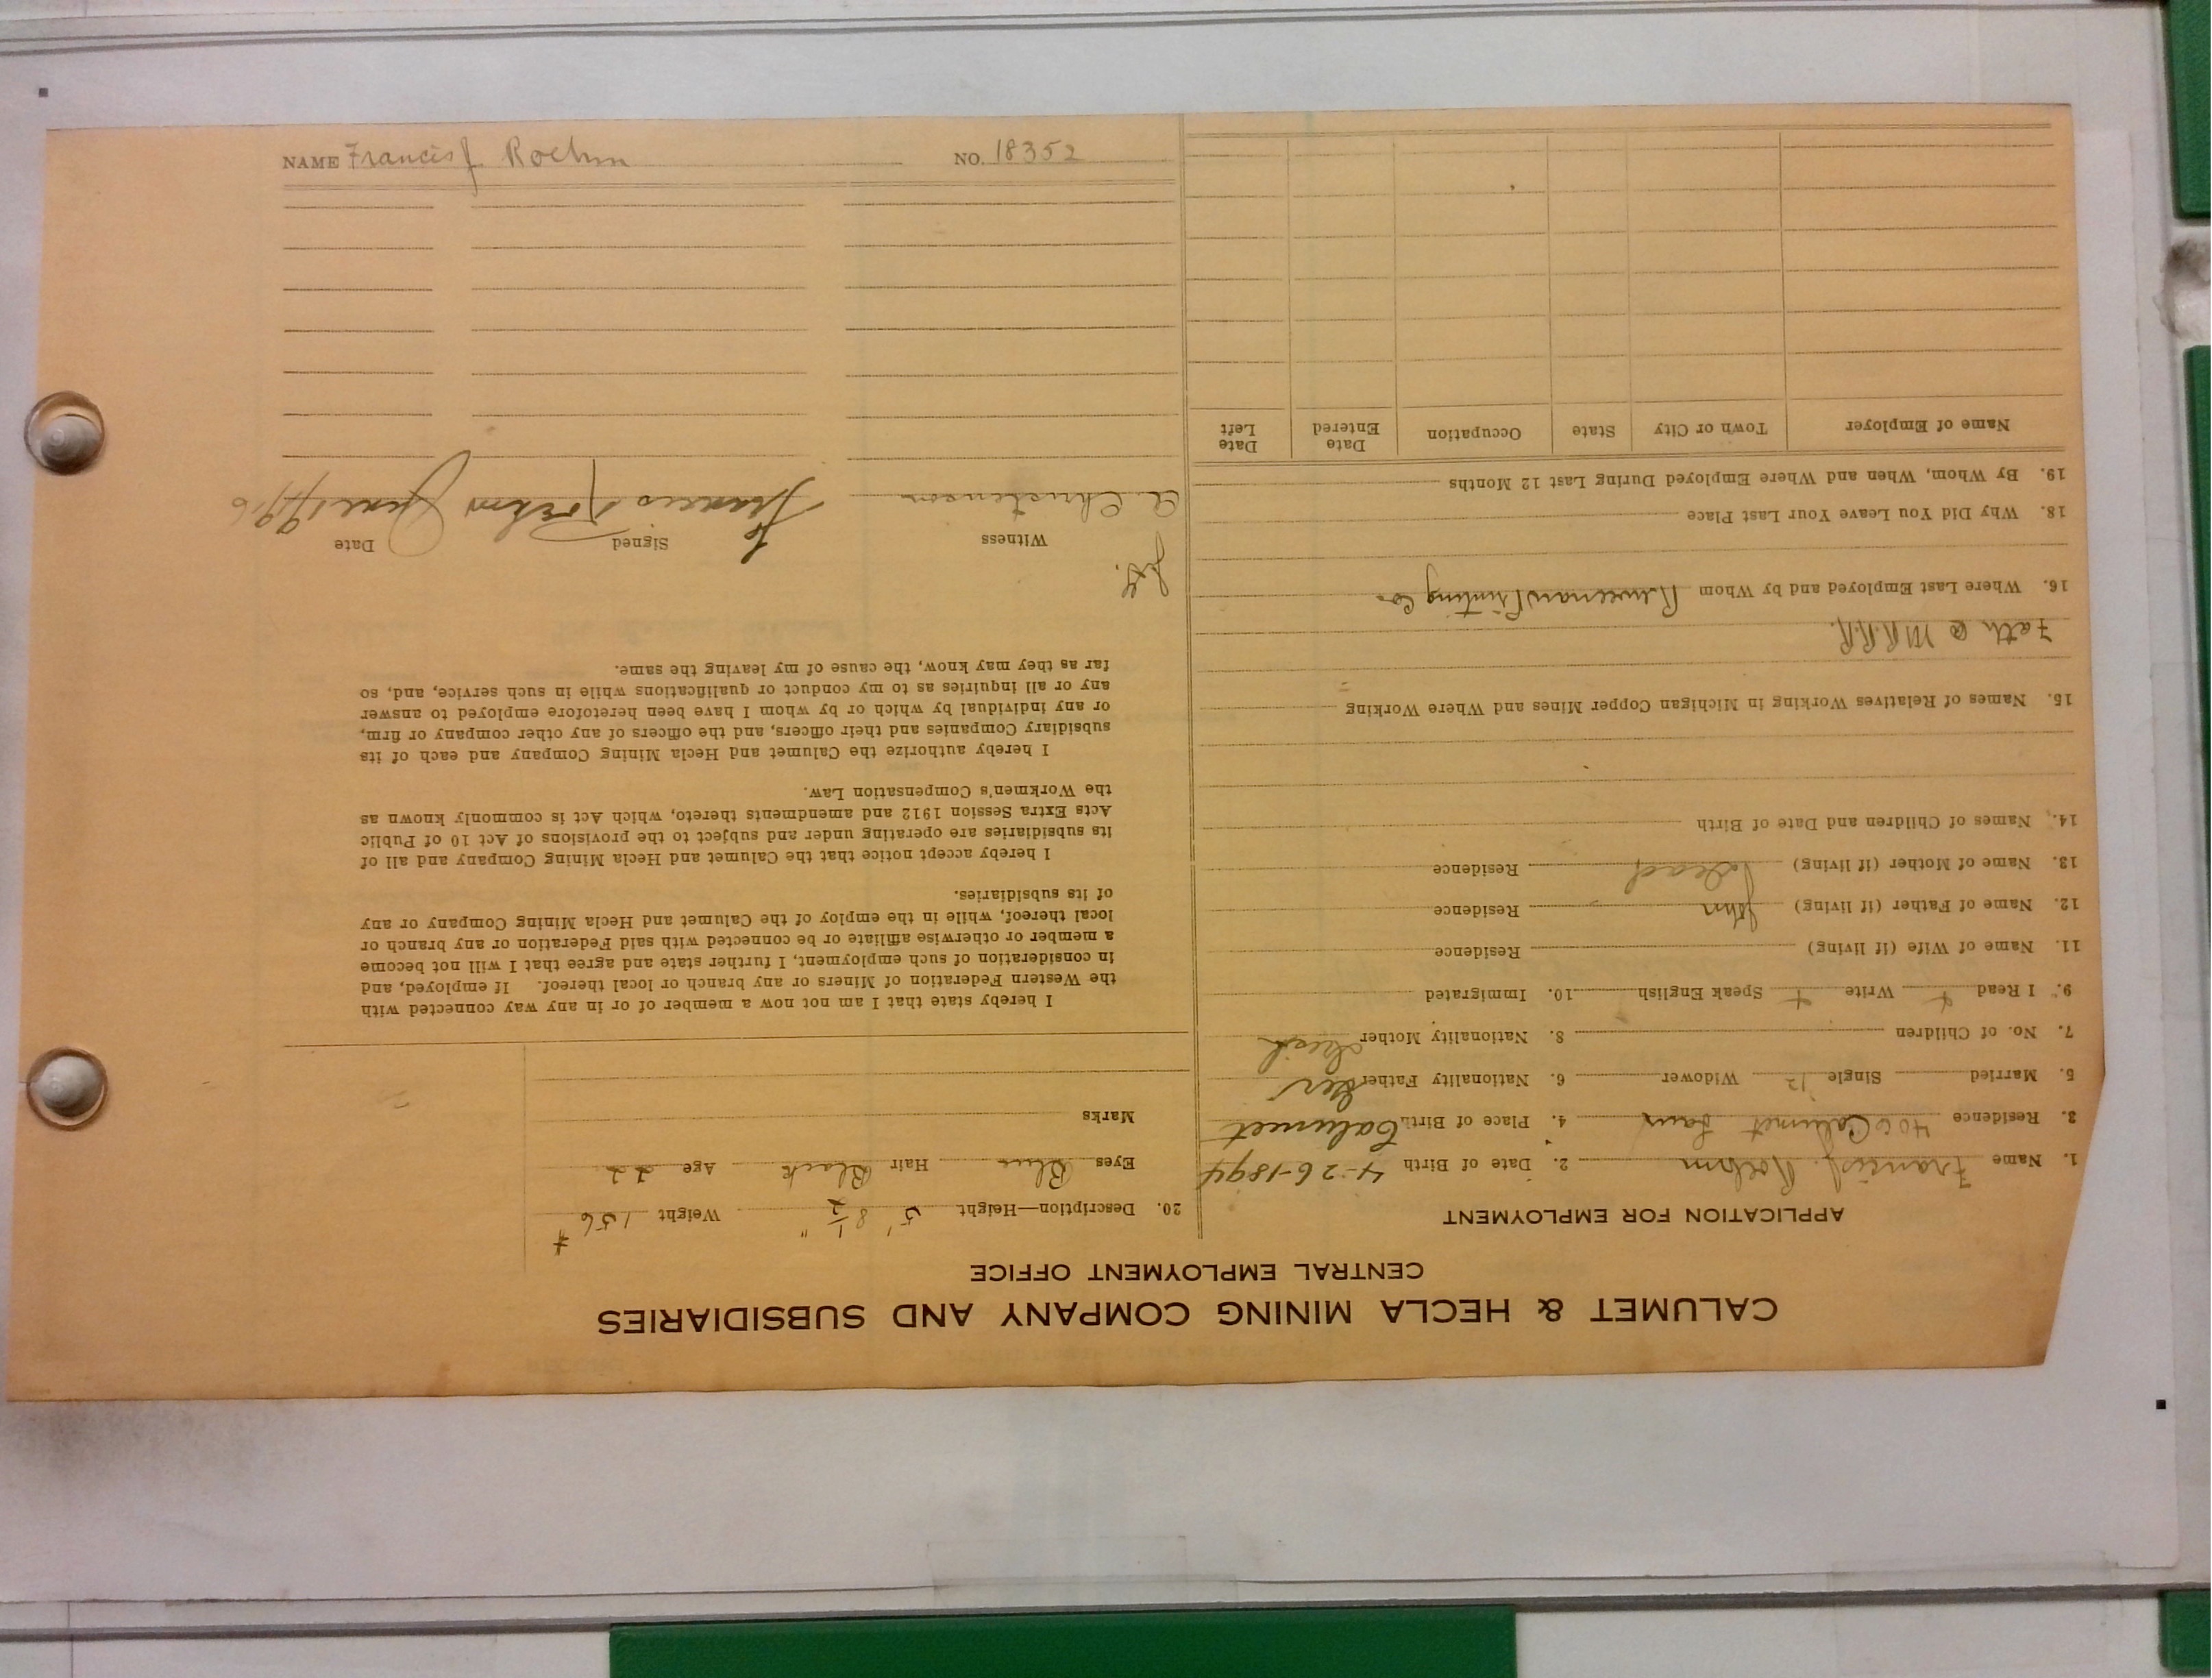 CALUMET & HECLA MINING COMPANY AND SUBSIDIARIES
CENTRAL EMPLOYMENT OFFICE
APPLICATION FOR EMPLOYMENT
1. Name Francis J. Roehm 2. Date of Birth 4-26-1894
3. Residence 406 Calumet 4. Place of Birth Calumet
5. Married Single Widower 6. Nationality Father Ger
7. No. of Children 8. Nationality Mother
9. I Read Write Speak English 10. Immigrated
11. Name of Wife (if living) Residence
12. Name of Father (if living) John Residence
13. Name of Mother (if living) Dead Residence
14. Names of Children and Date of Birth
15. Names of Relatives Working in Michigan Copper Mines and Where Working
Fath @ M.R.R.R.
16. Where Last Employed and by Whom Keweenaw Printing Co.
18. Why Did You Leave Your Last Place
19. By Whom, When and Where Employed During Last 12 Months
Name of Employer Town or City State Occupation Date Entered Date Left
20. Description—Height 5' 8 1/2" Weight 156 #
Eyes Blue Hair Black Age 22
Marks
I hereby state that I am not now a member of or in any way connected with
the Western Federation of Miners or any branch or local thereof. If employed, and
in consideration of such employment, I further state and agree that I will not become
a member or otherwise affiliate or be connected with said Federation or any branch or
local thereof, while in the employ of the Calumet and Hecla Mining Company or any
of its subsidiaries.
I hereby accept notice that the Calumet and Hecla Mining Company and all of
its subsidiaries are operating under and subject to the provisions of Act 10 of Public
Acts Extra Session 1912 and amendments thereto, which Act is commonly known as
the Workmen's Compensation Law.
I hereby authorize the Calumet and Hecla Mining Company and each of its
subsidiary Companies and their officers, and the officers of any other company or firm,
or any individual by which or by whom I have been heretofore employed to answer
any or all inquiries as to my conduct or qualifications while in such service, and, so
far as they may know, the cause of my leaving the same.
Witness Signed Date
A. Christenson Francis J. Roehm June
NAME Francis J Roehm NO. 18352